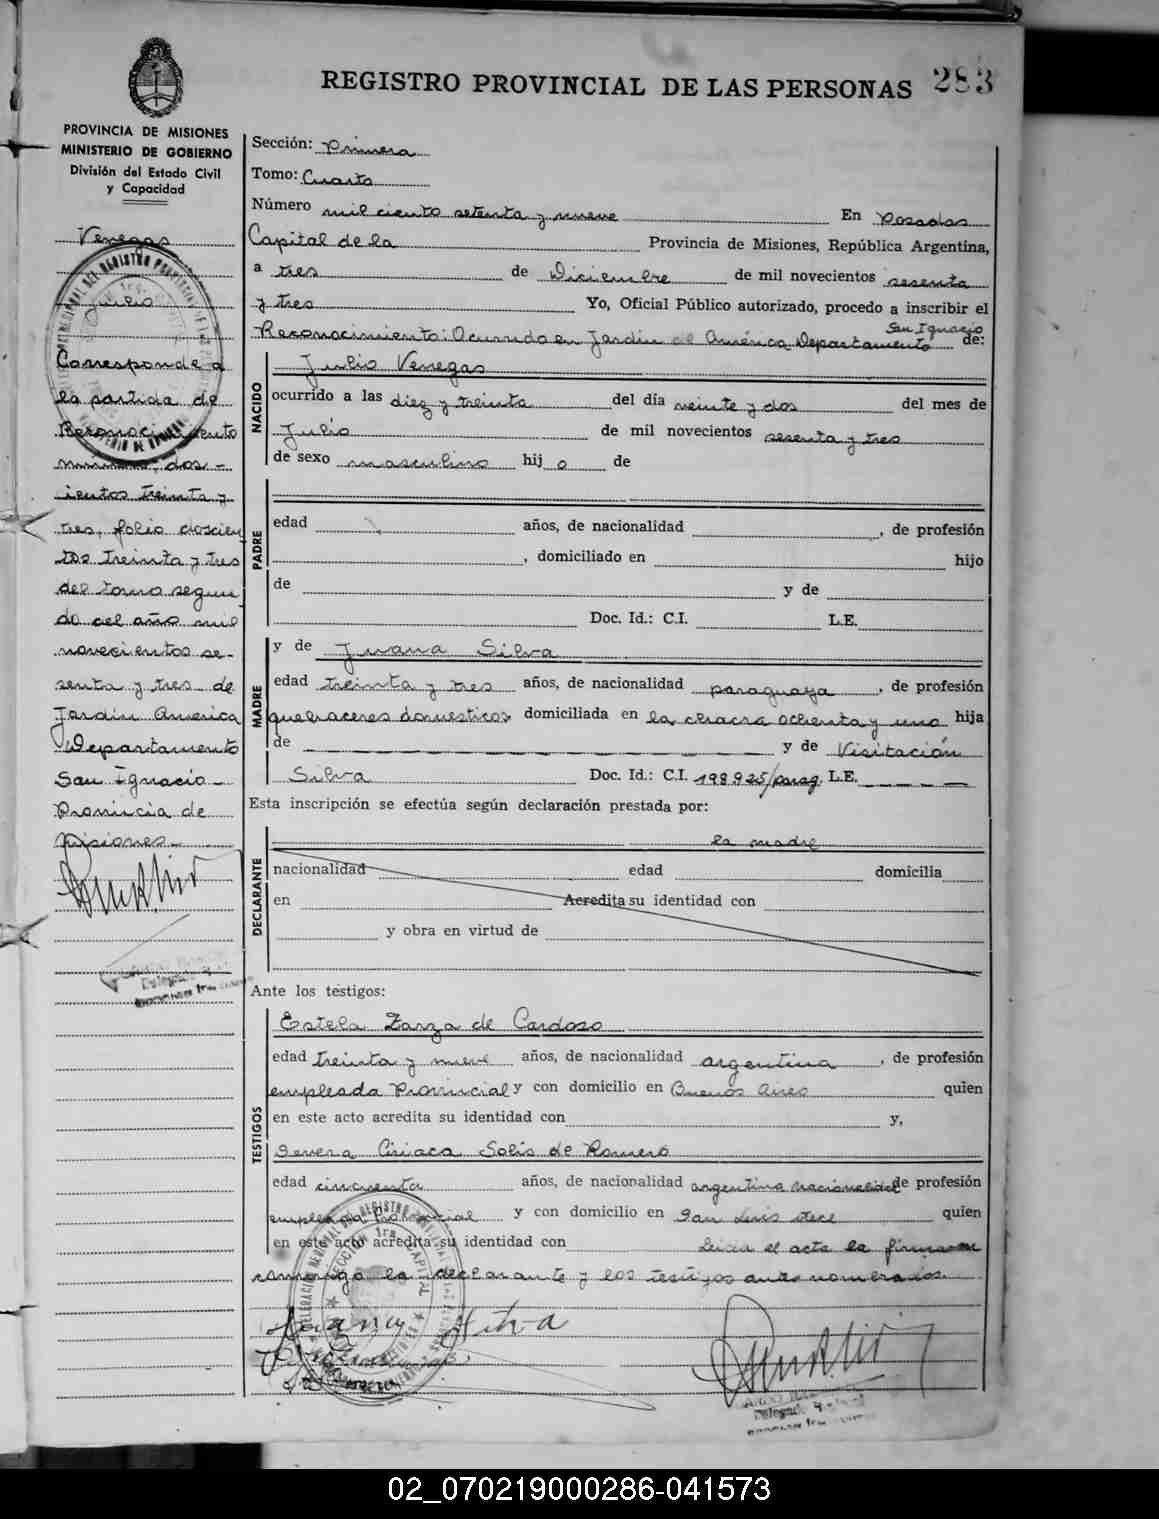 REGISTRO PROVINCIAL DE LAS PERSONAS 283
PROVINCIA DE MISIONES
MINISTERIO DE GOBIERNO
División del Estado Civil
y Capacidad
Venegas
Julio
Corresponde a
la partida de
Reconocimiento
número, dos-
cientos treinta y
tres, folio doscien
tos treinta y tres
del tomo segun
do del año mil
novecientos se-
senta y tres de
Jardin America
Departamento
San Ignacio
Provincia de
Misiones.
Sección: Primera
Tomo: Cuarto
Número mil ciento setenta y nueve En Posadas
Capital de la Provincia de Misiones, República Argentina,
a tres de Diciembre de mil novecientos sesenta
y tres Yo, Oficial Público autorizado, procedo a inscribir el
San Ignacio
Reconocimiento: Ocurrido en Jardin de América Departamento de:
NACIDO
Julio Venegas
ocurrido a las diez y treinta del día veinte y dos del mes de
Julio de mil novecientos sesenta y tres
de sexo masculino hij o de
PADRE
edad años, de nacionalidad , de profesión
, domiciliado en hijo
de y de
Doc. Id.: C.I. L.E.
MADRE
y de Juana Silva
edad treinta y tres años, de nacionalidad paraguaya , de profesión
quehaceres domesticos domiciliada en la chacra ochenta y uno hija
de y de Visitación
Silva Doc. Id.: C.I. 198925/parag. L.E.
Esta inscripción se efectúa según declaración prestada por:
DECLARANTE
la madre
nacionalidad edad domicilia
en Acredita su identidad con
y obra en virtud de
Ante los testigos:
TESTIGOS
Estela Zarza de Cardozo
edad treinta y nueve años, de nacionalidad argentina , de profesión
empleada Provincial y con domicilio en Buenos Aires quien
en este acto acredita su identidad con y,
Severa Ciriaca Solis de Romero
edad cincuenta años, de nacionalidad argentina nacionalidad de profesión
empleada Provincial y con domicilio en San Luis quien
en este acto acredita su identidad con Leida el acta la firman
conmigo la declarante y los testigos antes nomerados.
Juana Silva
02_070219000286-041573